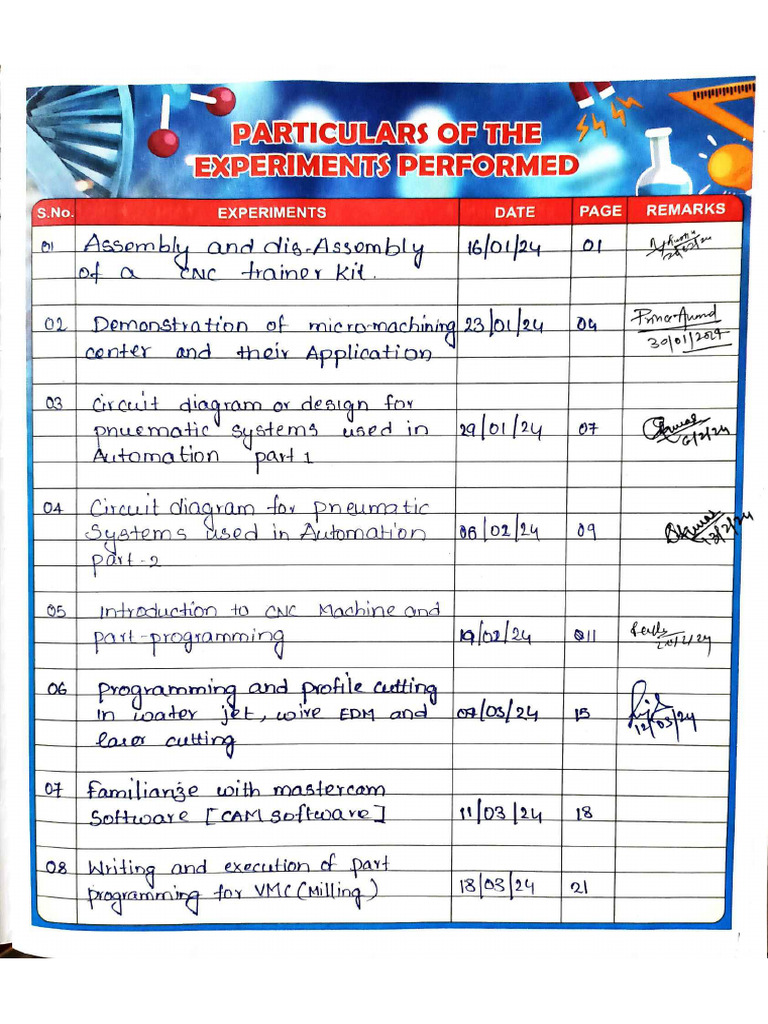 PARTICULARS OF THE
EXPERIMENTS PERFORMED
S.No. EXPERIMENTS DATE PAGE REMARKS
01 Assembly and dis-Assembly 16/01/24 01
of a CNC trainer kit.
02 Demonstration of micro-machining 23/01/24 04 Prince Anand
center and their Application 30/01/2024
03 Circuit diagram or design for
pnuematic systems used in 29/01/24 07
Automation part 1 6/2/24
04 Circuit diagram for pneumatic
Systems used in Automation 06/02/24 09 13/2/24
part-2
05 Introduction to CNC Machine and
part-programming 19/02/24 011
06 programming and profile cutting
in water jet, wire EDM and 07/03/24 15 12/03/24
laser cutting
07 Familianze with mastercam
Software [CAM Software] 11/03/24 18
08 Writing and execution of part
programming for VMC (Milling) 18/03/24 21